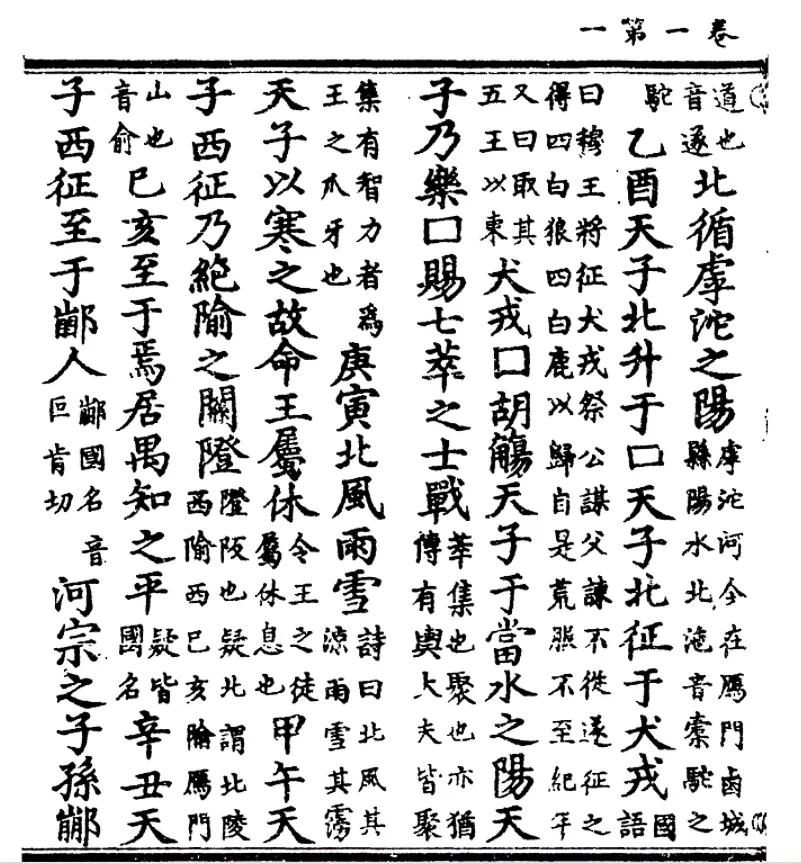 卷一第一
道也
音遂
北循虖沱之陽
虖沱河今在鴈門鹵城
縣陽水北沲音橐駝之
駝
乙酉天子北升于囗天子北征于犬戎
國
語
曰穆王將征犬戎祭公謀父諫不從遂征之
得四白狼四白鹿以歸自是荒服不至紀年
又曰取其
五王以東
犬戎囗胡觴天子于當水之陽天
子乃樂囗賜七萃之士戰
萃集也聚也亦猶
傳有輿大夫皆聚
集有智力者爲
王之爪牙也
庚寅北風雨雪
詩曰北風其
涼雨雪其雱
天子以寒之故命王屬休
令王之徒
屬休息也
甲午天
子西征乃絕隃之關隥
隥阪也疑北謂北陵
西隃西巳亥隃鴈門
山也
音俞
巳亥至于焉居禺知之平
疑皆
國名
辛丑天
子西征至于䣙人
䣙國名音
巨肯切
河宗之子孫䣙